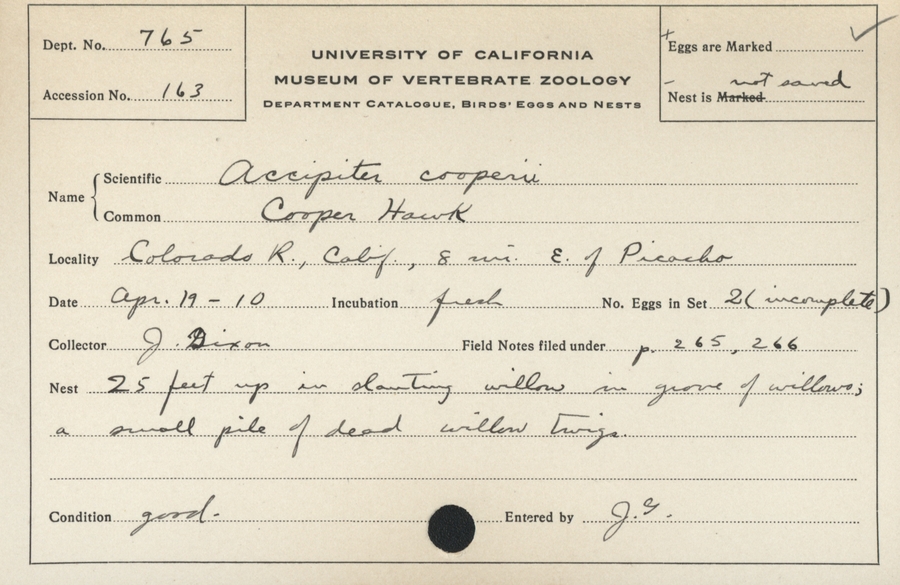 Dept. No. 765
Accession No. 163
UNIVERSITY OF CALIFORNIA
MUSEUM OF VERTEBRATE ZOOLOGY
DEPARTMENT CATALOGUE, BIRDS' EGGS AND NESTS
+ Eggs are Marked ✓
not saved
- Nest is Marked
Name { Scientific Accipiter cooperii
Common Cooper Hawk
Locality Colorado R., Calif., 8 mi. E. of Picacho
Date Apr. 19 - 10 Incubation fresh No. Eggs in Set 2 (incomplete)
Collector J. Dixon Field Notes filed under p. 265, 266
Nest 25 feet up in slanting willow in grove of willows;
a small pile of dead willow twigs.
Condition good. Entered by J.G.